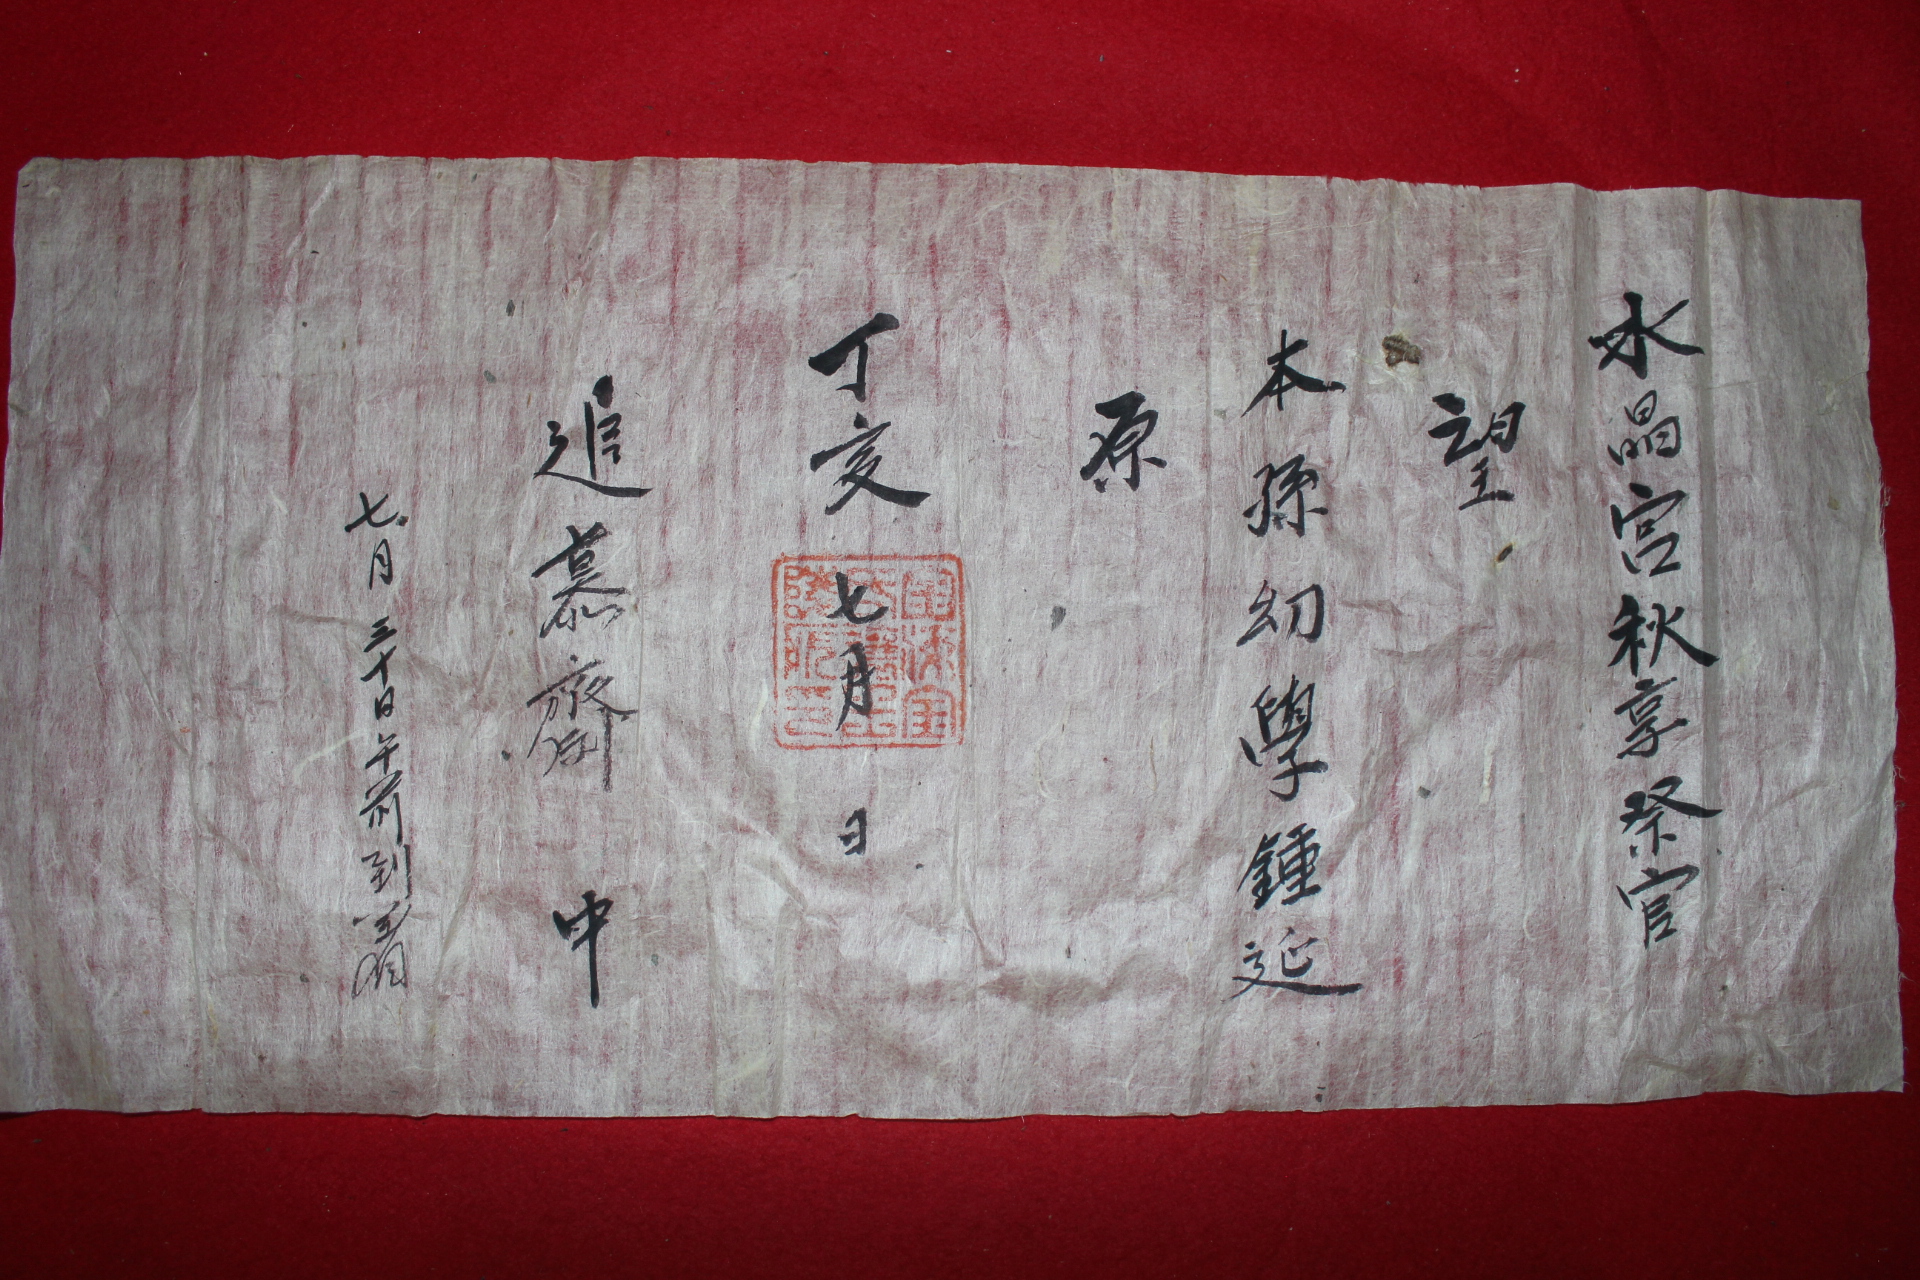 水晶宮秋享祭官
望
本孫幼學鍾延
原
丁亥七月 日
追慕齋 中
七月三十日午前到